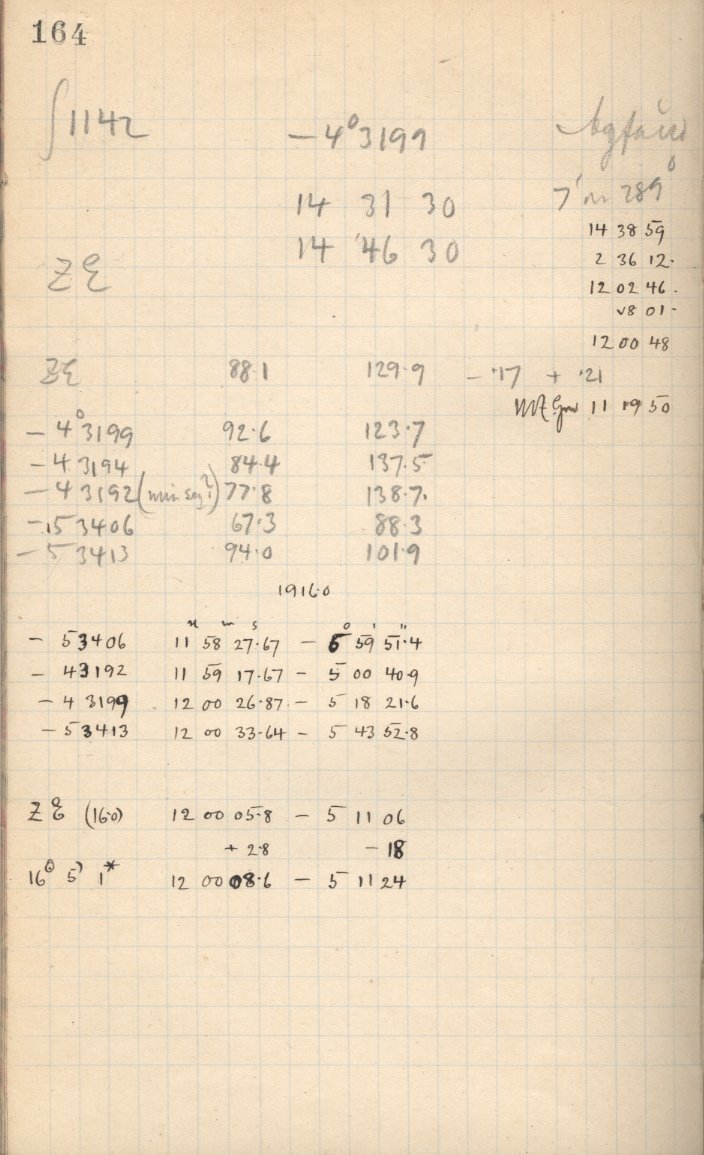 164
∫1142 -4°3199
14 31 30 7' 289°
14 46 30 14 38 59
2 36 12.
ZE 12 02 46.
8 01.
12 00 48
ZE 88.1 129.9 - .17 + .21
11 19 50
-4°3199 92.6 123.7
-4 3194 84.4 137.5
-4 3192 (min seq?) 77.8 138.7.
-5 3406 67.3 88.3
-5 3413 94.0 101.9
1916.0
H m s ° ' "
- 5 3406 11 58 27.67 - 5 59 51.4
- 4 3192 11 59 17.67 - 5 00 40.9
- 4 3199 12 00 26.87. - 5 18 21.6
- 5 3413 12 00 33.64 - 5 43 52.8
ZE (16.0) 12 00 05.8 - 5 11 06
+ 2.8 - 18
12 00 08.6 - 5 11 24